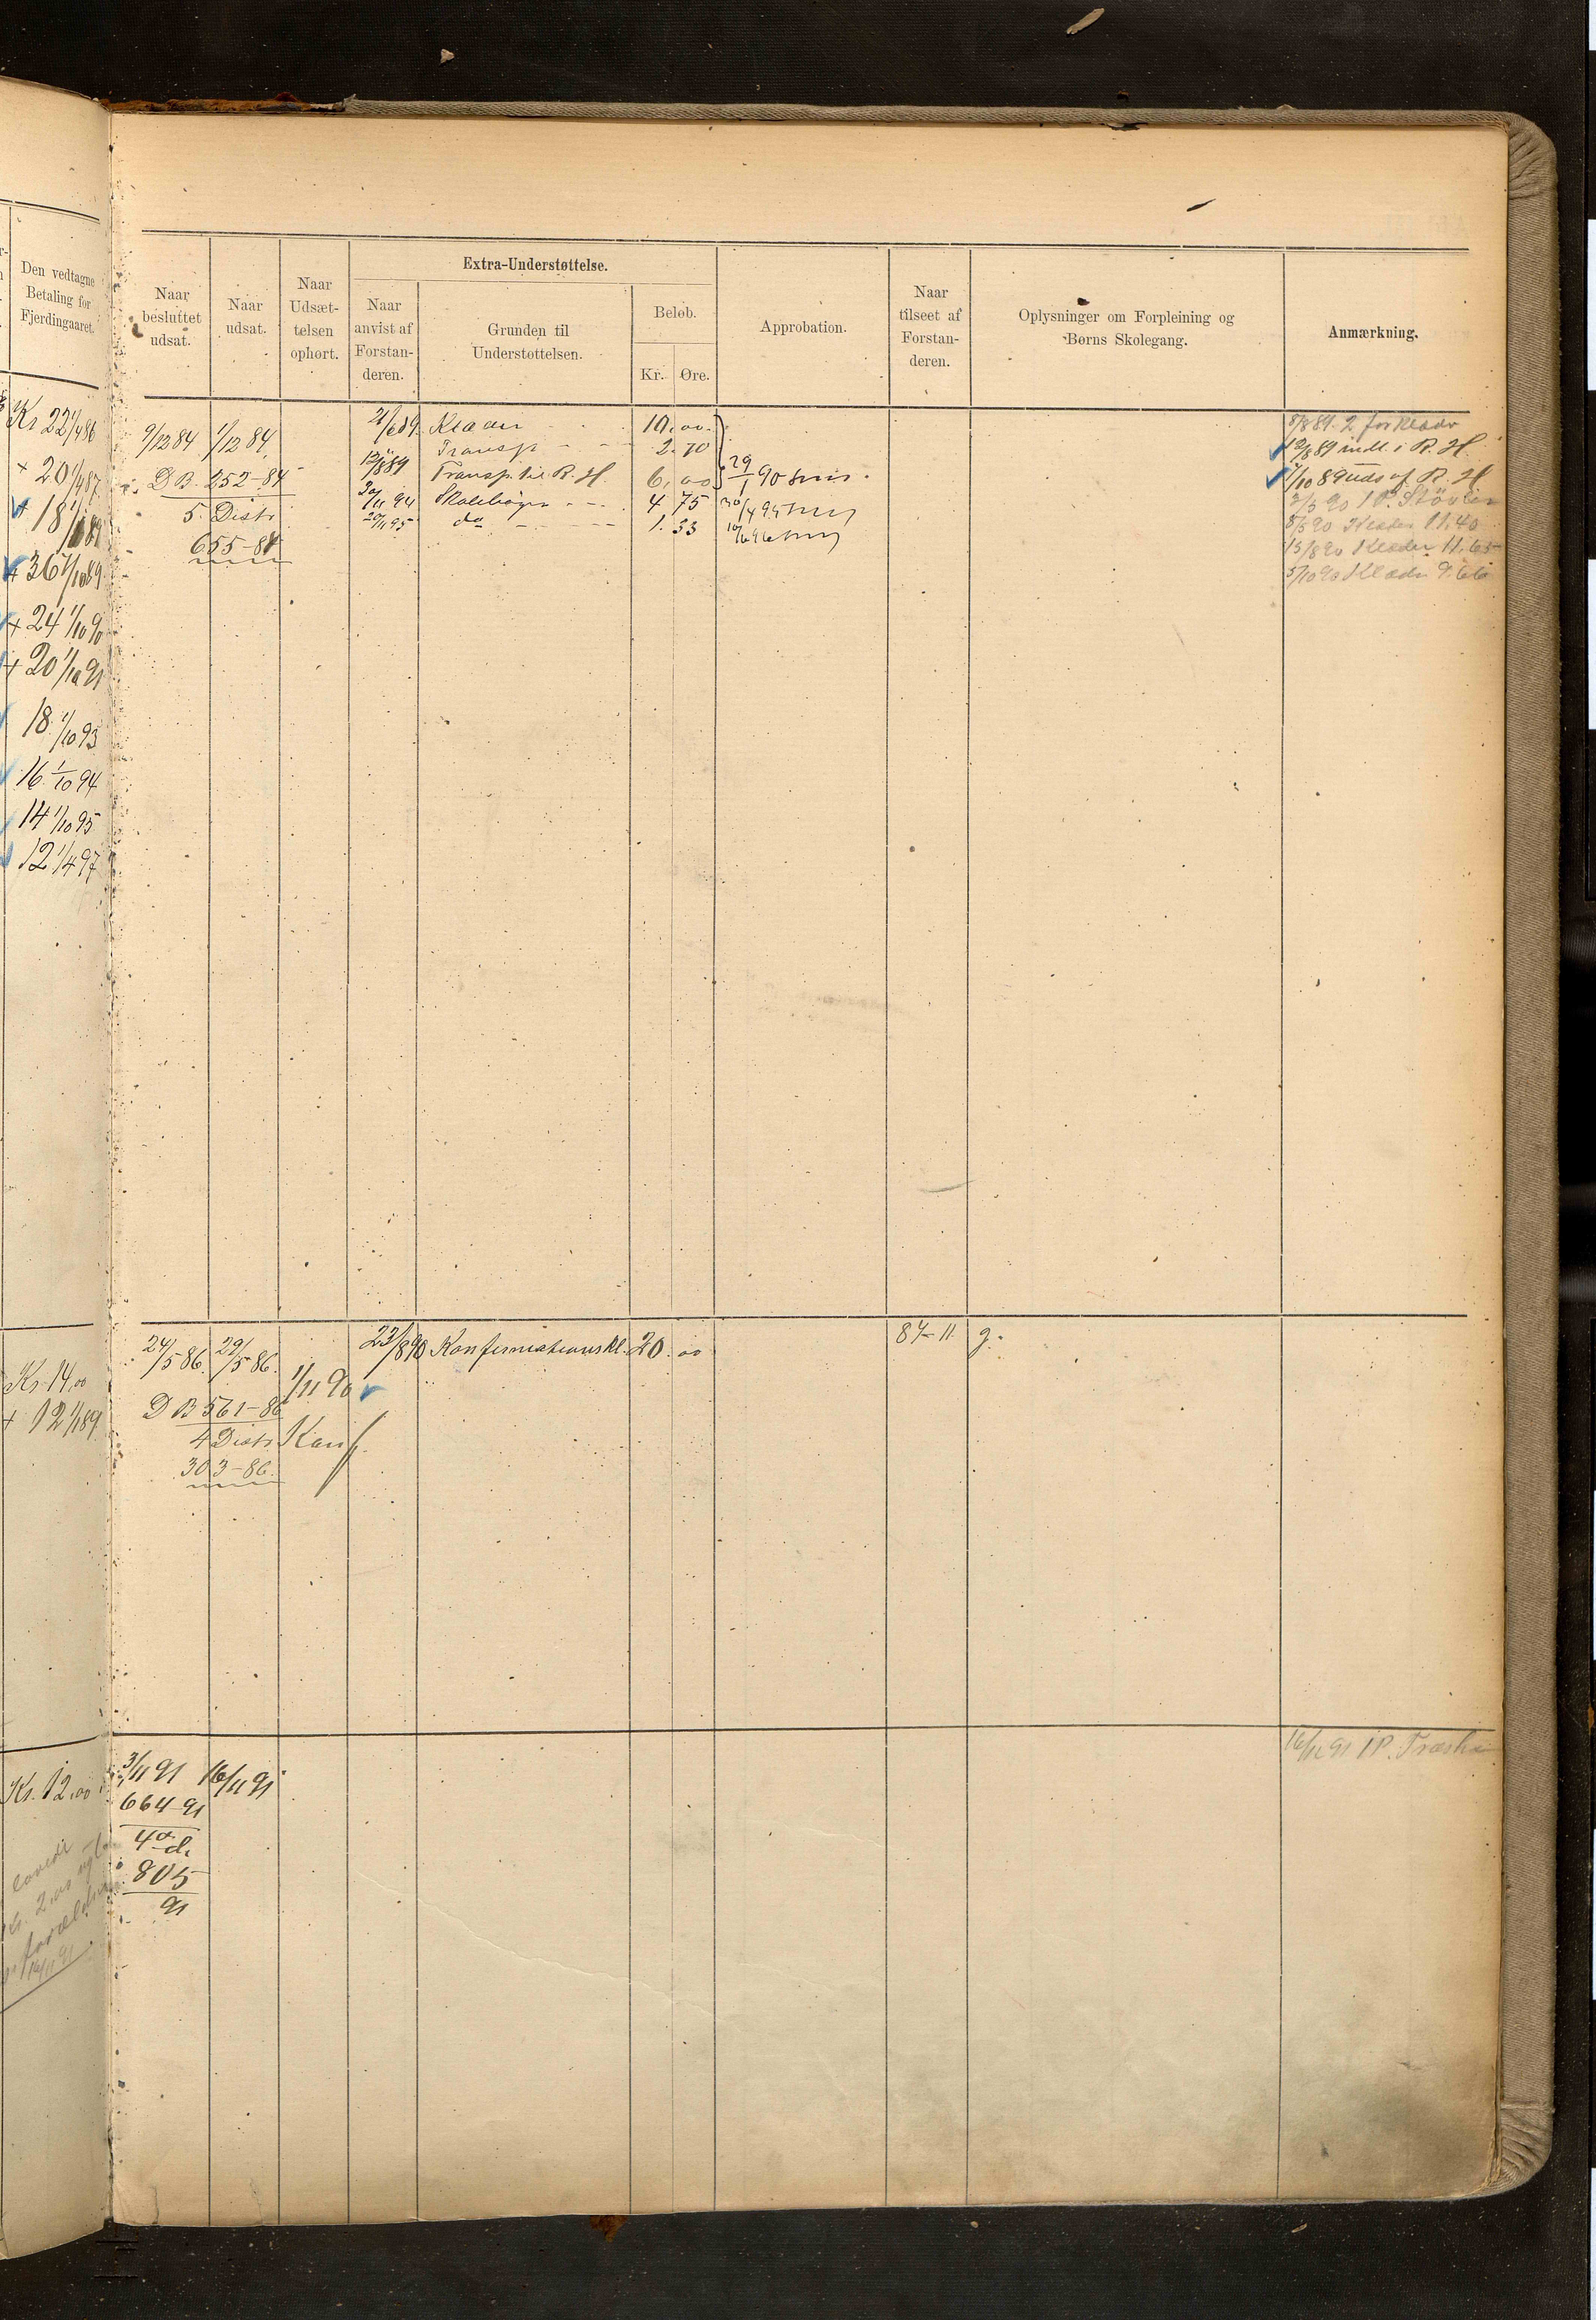 Den vedtagne
Betaling for
Fjerdingaaret.
Kr 22 1/4 86
+ 20 1/4 87
+ 18
+ 36 1/10 89
+ 24 1/10 90
+ 20 1/10 91
18 1/10 93
16 1/10 94
14 1/10 95
12 1/4 97
Kr. 14,00
+ 12 1/1 89
Kr. 12,00
Naar
besluttet
udsat.
Naar
udsat.
Naar
Udsæt-
telsen
ophørt.
Extra-Understøttelse.
Naar
anvist af
Forstan-
deren.
Grunden til
Understøttelsen.
Beløb.
Kr.
Øre.
Approbation.
Naar
tilseet af
Forstan-
deren.
Oplysninger om Forpleining og
Børns Skolegang.
Anmærkning.
9/12 84 1/12 84
D B. 252-84
5. Distr
655-84
21/6 89 Klæder 10.00
Transp 2.70
12/8 89 Transp. til R. H. 6,00
29/1 90
30/11 94 Skolebøger 4 75 30/4 95
20/11 95 do 1.33 10/6 96
8/8 89. 2 for Klæder
12/8 89 indl. i R. H.
1/10 89 uds af R. H
2/3 90 1 P. Støvler
8/5 90 Klæder 11.40
15/8 90 Klæder 11.65
5/10 90 Klæder 9.66
24/5 86. 29/5 86.
1/11 90
D B 561-86
4 Distr Konf.
303-86.
23/8 90 Konfirmationskl. 20.00
87-11 g.
3/11 91 16/11 91
664-91
4de d.
805
91
16/11 91 1 P. Træsko